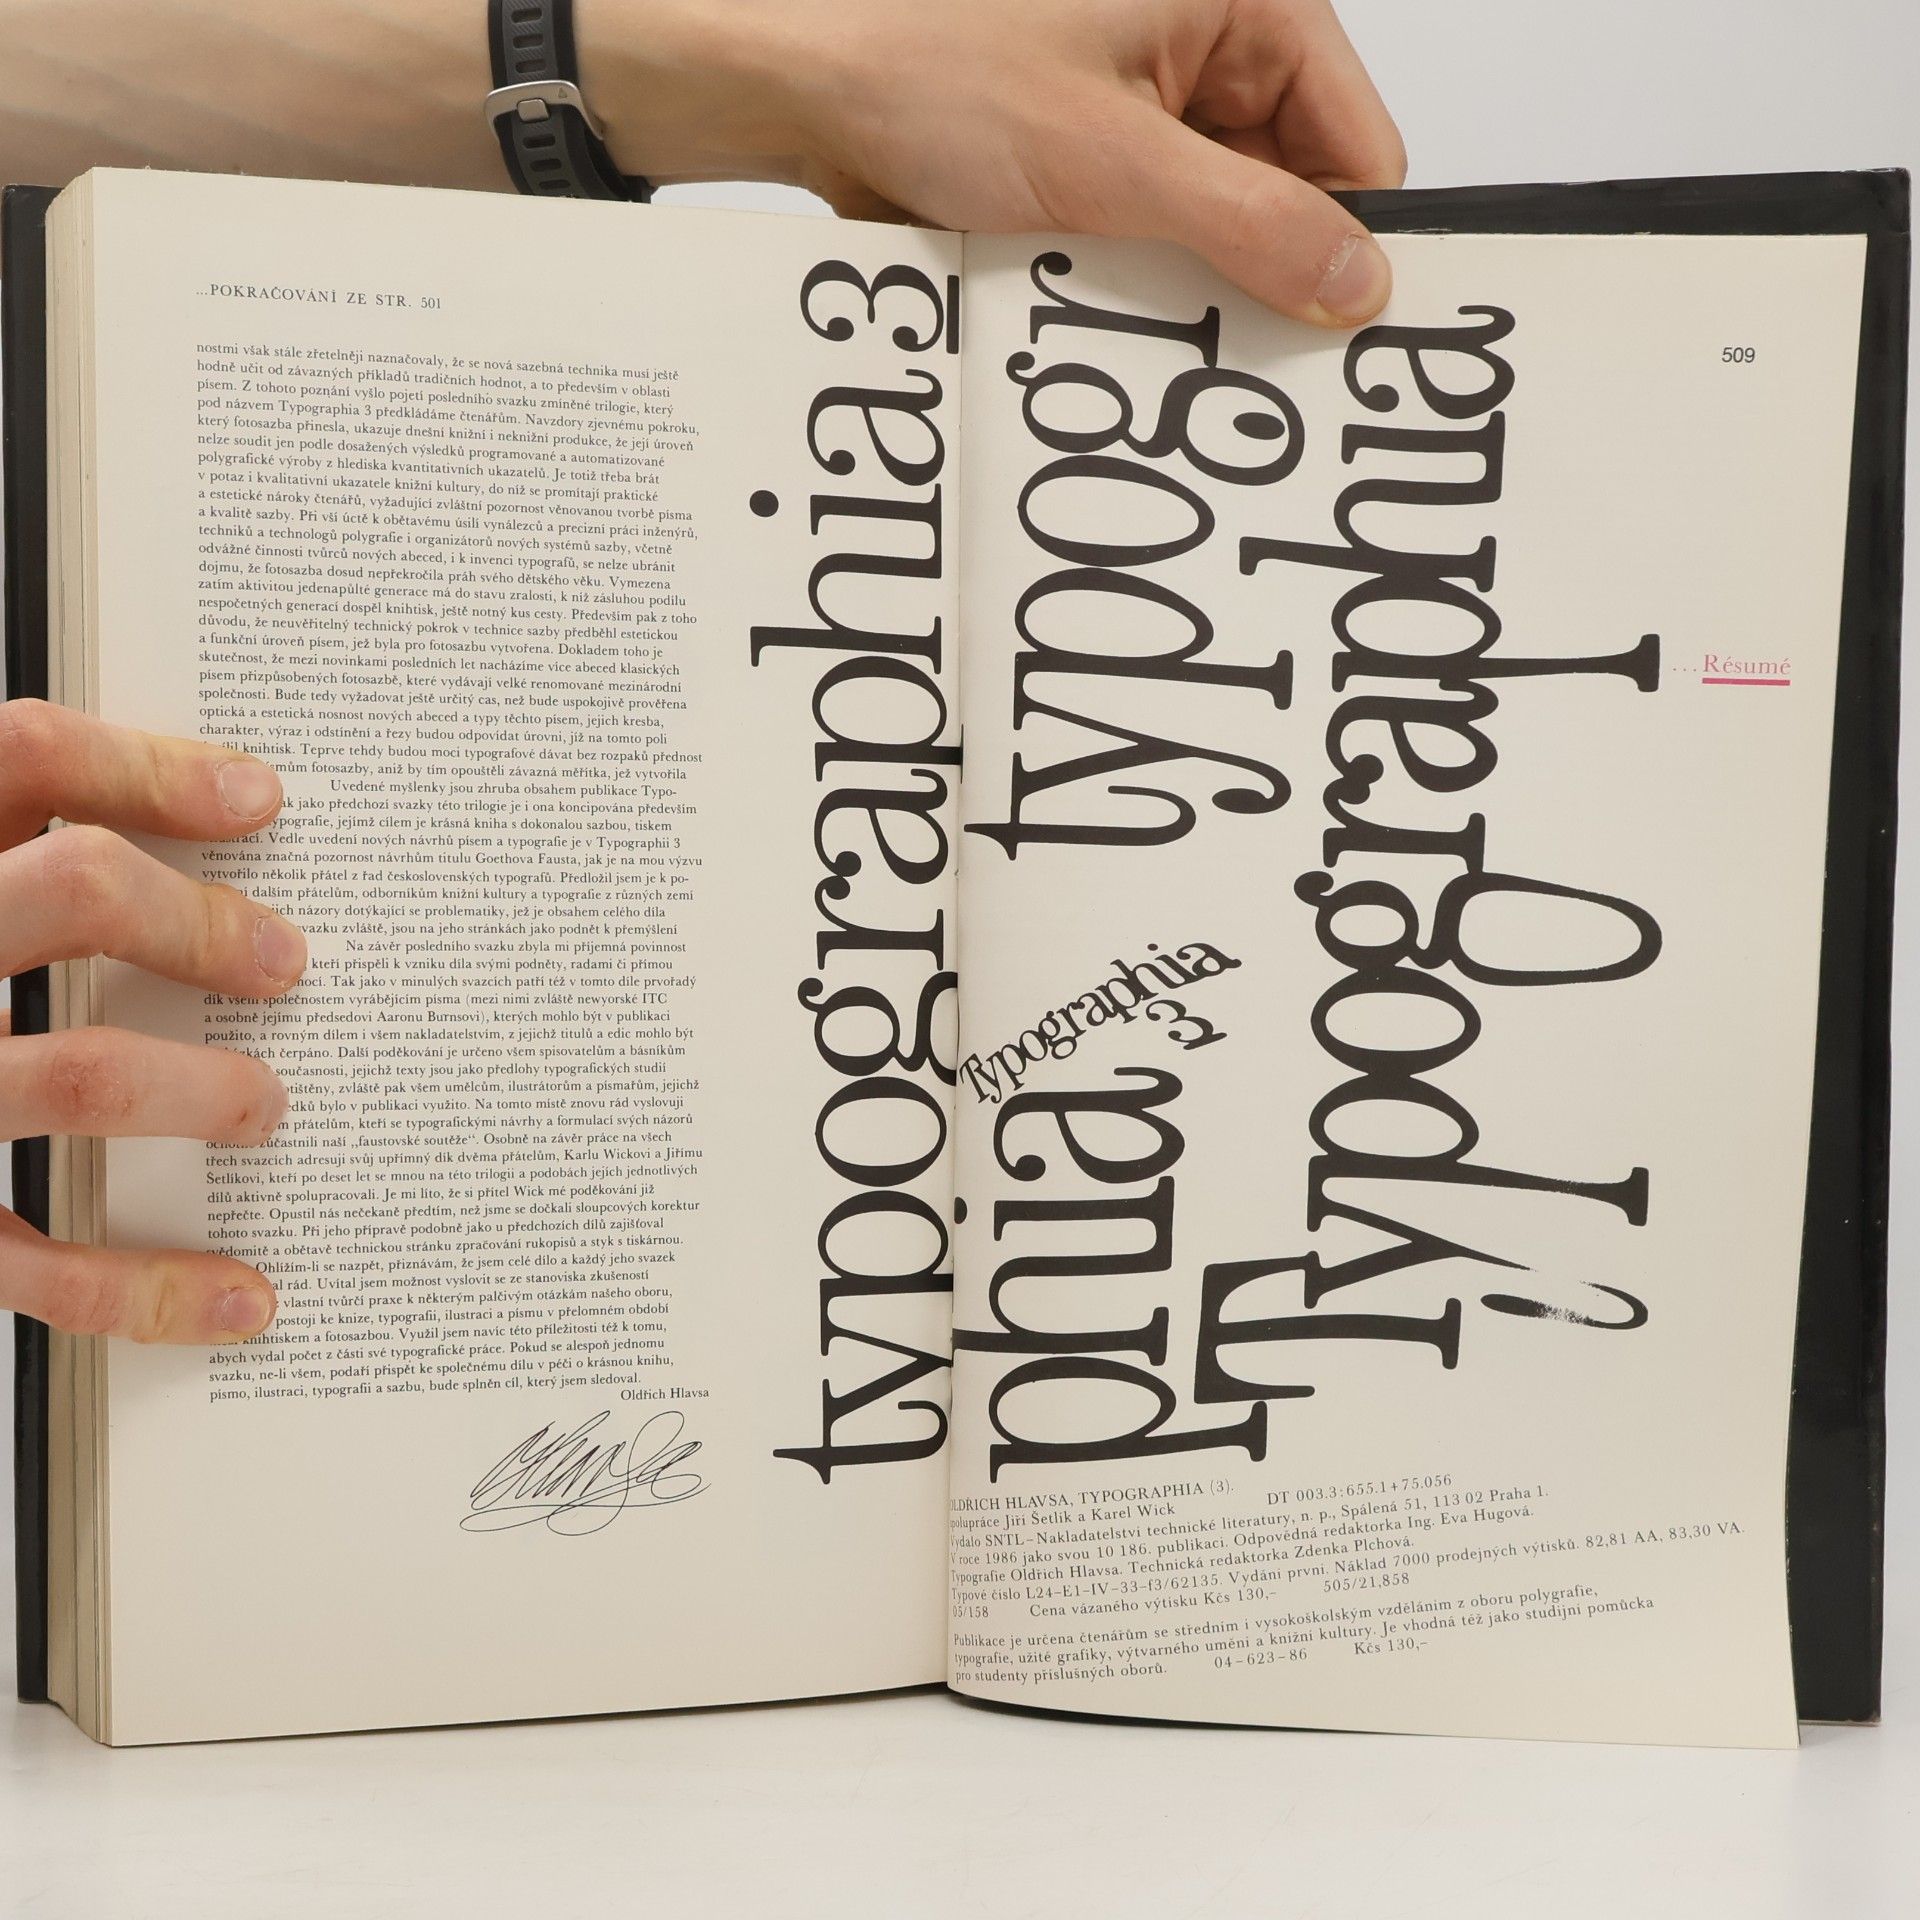 ...POKRAČOVÁNÍ ZE STR. 501
nostmi však stále zřetelněji naznačovaly, že se nová sazebná technika musí ještě
hodně učit od závazných příkladů tradičních hodnot, a to především v oblasti
písem. Z tohoto poznání vyšlo pojetí posledního svazku zmíněné trilogie, který
pod názvem Typographia 3 předkládáme čtenářům. Navzdory zjevnému pokroku,
který fotosazba přinesla, ukazuje dnešní knižní i neknižní produkce, že její úroveň
nelze soudit jen podle dosažených výsledků programované a automatizované
polygrafické výroby z hlediska kvantitativních ukazatelů. Je totiž třeba brát
v potaz i kvalitativní ukazatele knižní kultury, do níž se promítají praktické
a estetické nároky čtenářů, vyžadující zvláštní pozornost věnovanou tvorbě písma
a kvalitě sazby. Při vší úctě k obětavému úsilí vynálezců a precizní práci inženýrů,
techniků a technologů polygrafie i organizátorů nových systémů sazby, včetně
odvážné činnosti tvůrců nových abeced, i k invenci typografů, se nelze ubránit
dojmu, že fotosazba dosud nepřekročila práh svého dětského věku. Vymezena
zatím aktivitou jedenapůlté generace má do stavu zralosti, k níž zásluhou podílu
nespočetných generací dospěl knihtisk, ještě notný kus cesty. Především pak z toho
důvodu, že neuvěřitelný technický pokrok v technice sazby předběhl estetickou
a funkční úroveň písem, jež byla pro fotosazbu vytvořena. Dokladem toho je
skutečnost, že mezi novinkami posledních let nacházíme více abeced klasických
písem přizpůsobených fotosazbě, které vydávají velké renomované mezinárodní
společnosti. Bude tedy vyžadovat ještě určitý cas, než bude uspokojivě prověřena
optická a estetická nosnost nových abeced a typy těchto písem, jejich kresba,
charakter, výraz i odstínění a řezy budou odpovídat úrovni, jíž na tomto poli
knihtisk. Teprve tehdy budou moci typografové dávat bez rozpaků přednost
fotosazby, aniž by tím opouštěli závazná měřítka, jež vytvořila
Uvedené myšlenky jsou zhruba obsahem publikace Typo-
jako předchozí svazky této trilogie je i ona koncipována především
jejímž cílem je krásná kniha s dokonalou sazbou, tiskem
Vedle uvedení nových návrhů písem a typografie je v Typographii 3
věnována značná pozornost návrhům titulu Goethova Fausta, jak je na mou výzvu
vytvořilo několik přátel z řad československých typografů. Předložil jsem je k po-
dalším přátelům, odborníkům knižní kultury a typografie z různých zemí
názory dotýkající se problematiky, jež je obsahem celého díla
svazku zvláště, jsou na jeho stránkách jako podnět k přemýšlení
Na závěr posledního svazku zbyla mi příjemná povinnost
kteří přispěli k vzniku díla svými podněty, radami či přímou
Tak jako v minulých svazcích patří též v tomto díle prvořadý
dík všem společnostem vyrábějícím písma (mezi nimi zvláště newyorské ITC
a osobně jejímu předsedovi Aaronu Burnsovi), kterých mohlo být v publikaci
použito, a rovným dílem i všem nakladatelstvím, z jejichž titulů a edic mohlo být
čerpáno. Další poděkování je určeno všem spisovatelům a básníkům
současnosti, jejichž texty jsou jako předlohy typografických studií
zvláště pak všem umělcům, ilustrátorům a písmařům, jejichž
bylo v publikaci využito. Na tomto místě znovu rád vyslovuji
přátelům, kteří se typografickými návrhy a formulací svých názorů
zúčastnili naší „faustovské soutěže“. Osobně na závěr práce na všech
třech svazcích adresuji svůj upřímný dík dvěma přátelům, Karlu Wickovi a Jiřímu
Šetlíkovi, kteří po deset let se mnou na této trilogii a podobách jejích jednotlivých
dílů aktivně spolupracovali. Je mi líto, že si přítel Wick mé poděkování již
nepřečte. Opustil nás nečekaně předtím, než jsme se dočkali sloupcových korektur
tohoto svazku. Při jeho přípravě podobně jako u předchozích dílů zajišťoval
svědomitě a obětavě technickou stránku zpracování rukopisů a styk s tiskárnou.
Ohlížím-li se nazpět, přiznávám, že jsem celé dílo a každý jeho svazek
rád. Uvítal jsem možnost vyslovit se ze stanoviska zkušeností
vlastní tvůrčí praxe k některým palčivým otázkám našeho oboru,
postoji ke knize, typografii, ilustraci a písmu v přelomném období
knihtiskem a fotosazbou. Využil jsem navíc této příležitosti též k tomu,
abych vydal počet z části své typografické práce. Pokud se alespoň jednomu
svazku, ne-li všem, podaří přispět ke společnému dílu v péči o krásnou knihu,
písmo, ilustraci, typografii a sazbu, bude splněn cíl, který jsem sledoval.
Oldřich Hlavsa
typographia 3
typogr
phia
Typographia
3
Typographia
509
...Résumé
OLDŘICH HLAVSA, TYPOGRAPHIA (3). DT 003.3:655.1+75.056
spolupráce Jiří Šetlík a Karel Wick
Vydalo SNTL–Nakladatelství technické literatury, n. p., Spálená 51, 113 02 Praha 1.
V roce 1986 jako svou 10 186. publikaci. Odpovědná redaktorka Ing. Eva Hugová.
Typografie Oldřich Hlavsa. Technická redaktorka Zdenka Plchová.
Typové číslo L24–E1–IV–33–f3/62135. Vydání první. Náklad 7000 prodejných výtisků. 82,81 AA, 83,30 VA.
05/158 Cena vázaného výtisku Kčs 130,– 505/21,858
Publikace je určena čtenářům se středním i vysokoškolským vzděláním z oboru polygrafie,
typografie, užité grafiky, výtvarného umění a knižní kultury. Je vhodná též jako studijní pomůcka
pro studenty příslušných oborů. 04–623–86 Kčs 130,–